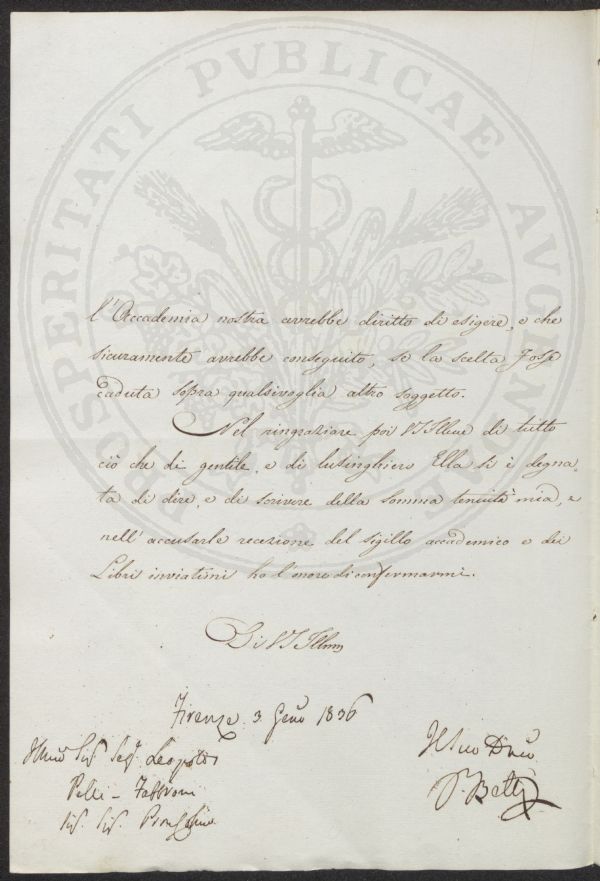 PROSPERITATI PVBLICAE AVGENDAE
l'Accademia nostra avrebbe diritto di esigere, e che
sicuramente avrebbe conseguito, se la scelta fosse
caduta sopra qualsivoglia altro soggetto.
Nel ringraziare poi VS Illma di tutto
ciò che di gentile, e di lusinghiero Ella si è degna-
ta di dire, e di scrivere della somma tenuità mia, e
nell'accusarle recezione del sigillo accademico e dei
Libri inviatimi ho l'onore di confermarmi.
Di VS Illma
Firenze 3 Genn 1836
Illmo Sig Seg Leopoldo
Pelli-Fabbroni
Il Suo Devo
P. Betti